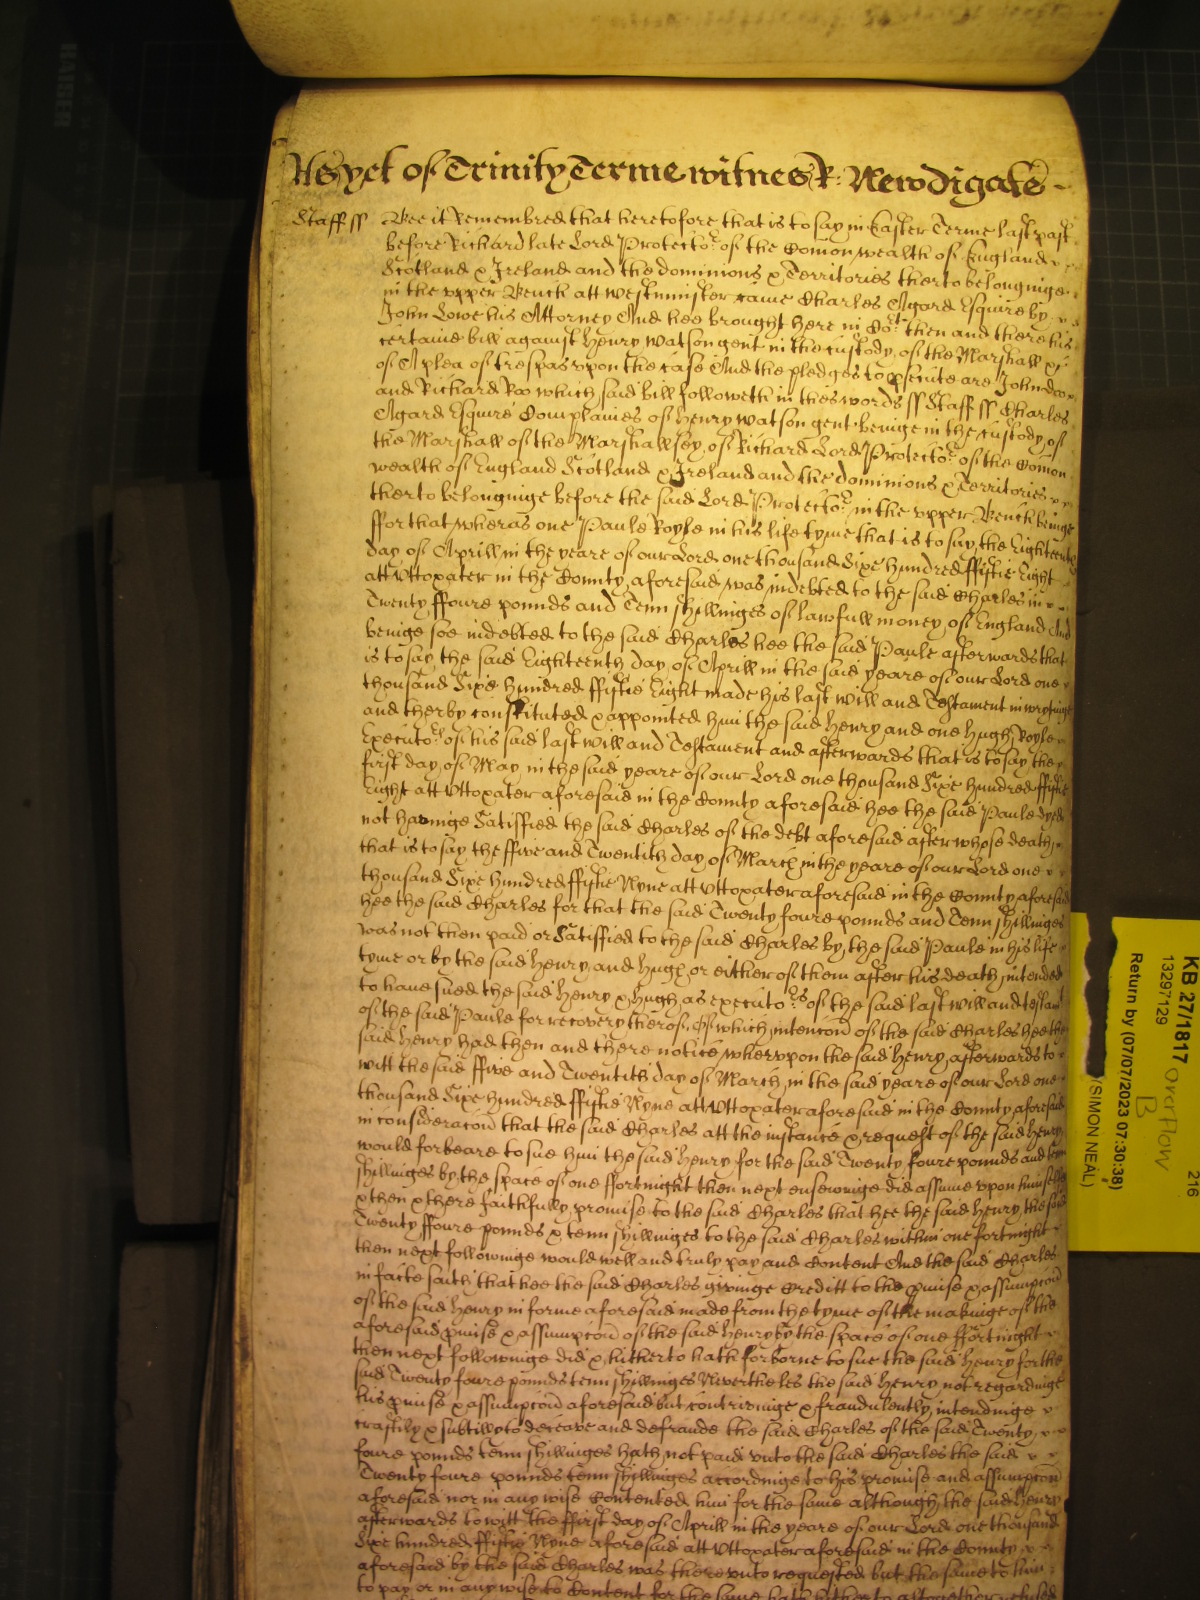 As yet of Trinity Terme witnes R: Newdigate
Staff ss Bee it Remembred that heretofore that is to say in Easter Terme last past
before Richard late Lord Protector of the Comon wealth of England
Scotland & Ireland and the dominions & Territories therto belonginge
in the upper Bench att Westminster came Charles Agard Esquire by
John Lowe his Attorney And hee brought here in Cort then and there his
certaine bill against Henry Watson gent in the custody of the Marshall &c
of A plea of trespas upon the case And the pledges to psecute are John doo
and Richard Roo which said bill followeth in thes words ss Staff ss Charles
Agard Esquire Complaines of Henry Watson gent beinge in the custody of
the Marshall of the Marshallsey of Richard Lord Protector of the Comon
wealth of England Scotland & Ireland and the dominions & Territories
therto belonginge before the said Lord Protector in the upper Bench beinge
ffor that wheras one Paule Royle in his life tyme that is to say the Eighteenth
day of Aprill in the yeare of our Lord one thousand Sixe hundred ffiftie Eight
att Uttoxater in the County aforesaid was indebted to the said Charles in
Twenty ffoure pounds and Tenn shillinges of lawfull money of England And
beinge soe indebted to the said Charles hee the said Paule afterwards that
is to say the said Eighteenth day of Aprill in the said yeare of our Lord one
thousand Sixe hundred ffiftie Eight made his last will and Testament in wrytinge
and therby constituted & appointed him the said Henry and one Hugh Royle
Executors of his said last will and Testament and afterwards that is to say the
first day of May in the said yeare of our Lord one thousand Sixe hundred ffiftie
Eight att Uttoxater aforesaid in the County aforesaid hee the said Paule dyed
not havinge Satisfied the said Charles of the debt aforesaid after whose death
that is to say the ffive and Twentith day of March in the yeare of our Lord one
thousand Sixe hundred ffiftie Nyne att Uttoxater aforesaid in the County aforesaid
hee the said Charles for that the said Twenty foure pounds and Tenn shillinges
was not then paid or Satisfied to the said Charles by the said Paule in his life
tyme or by the said Henry and Hugh or either of them after his death intended
to have sued the said Henry & Hugh as executors of the said last will and testamt
of the said Paule for recovery therof Of which intencon of the said Charles hee the
said Henry had then and there notice wherupon the said Henry afterwards to
witt the said ffive and Twentith day of March in the said yeare of our Lord one
thousand Sixe hundred ffiftie Nyne att Uttoxater aforesaid in the County aforesaid
in consideracon that the said Charles att the instance & request of the said Henry
would forbeare to sue him the said Henry for the said Twenty foure pounds and tenn
shillinges by the space of one ffortnight then next ensewinge did assume upon himselfe
& then & there faithfully promise to the said Charles that hee the said Henry the said
Twenty ffoure pounds & tenn shillinges to the said Charles within one fortnight
then next followinge would well and truly pay and Content And the said Charles
in facte saith that hee the said Charles givinge Creditt to the pmise & assumpcon
of the said Henry in forme aforesaid made from the tyme of the makinge of the
aforesaid pmise & assumpcon of the said Henry by the space of one ffortnight
then next followinge did & hitherto hath forborne to sue the said Henry for the
said Twenty foure pounds tenn shillinges Neverthe les the said Henry not regardinge
his pmise & assumpcon aforesaid but contrivinge & fraudulently intendinge
craftily & subtilly to deceave and defraude the said Charles of the said Twenty
foure pounds tenn shillinges hath not paid unto the said Charles the said
Twenty foure pounds tenn shillinges accordinge to his promise and assumpcon
aforesaid nor in any wise Contented him for the same although the said Henry
afterwards to witt the ffirst day of Aprill in the yeare of our Lord one thousand
Sixe hundred ffiftie Nyne aforesaid att Uttoxater aforesaid in the County
aforesaid by the said Charles was thereunto requested but the same to him
to pay or in any wise to Content for the same hath hitherto altogether refused
KB 27/1817 overflow 216
13297129 B
Return by (07/07/2023 07:30:38)
(SIMON NEAL)